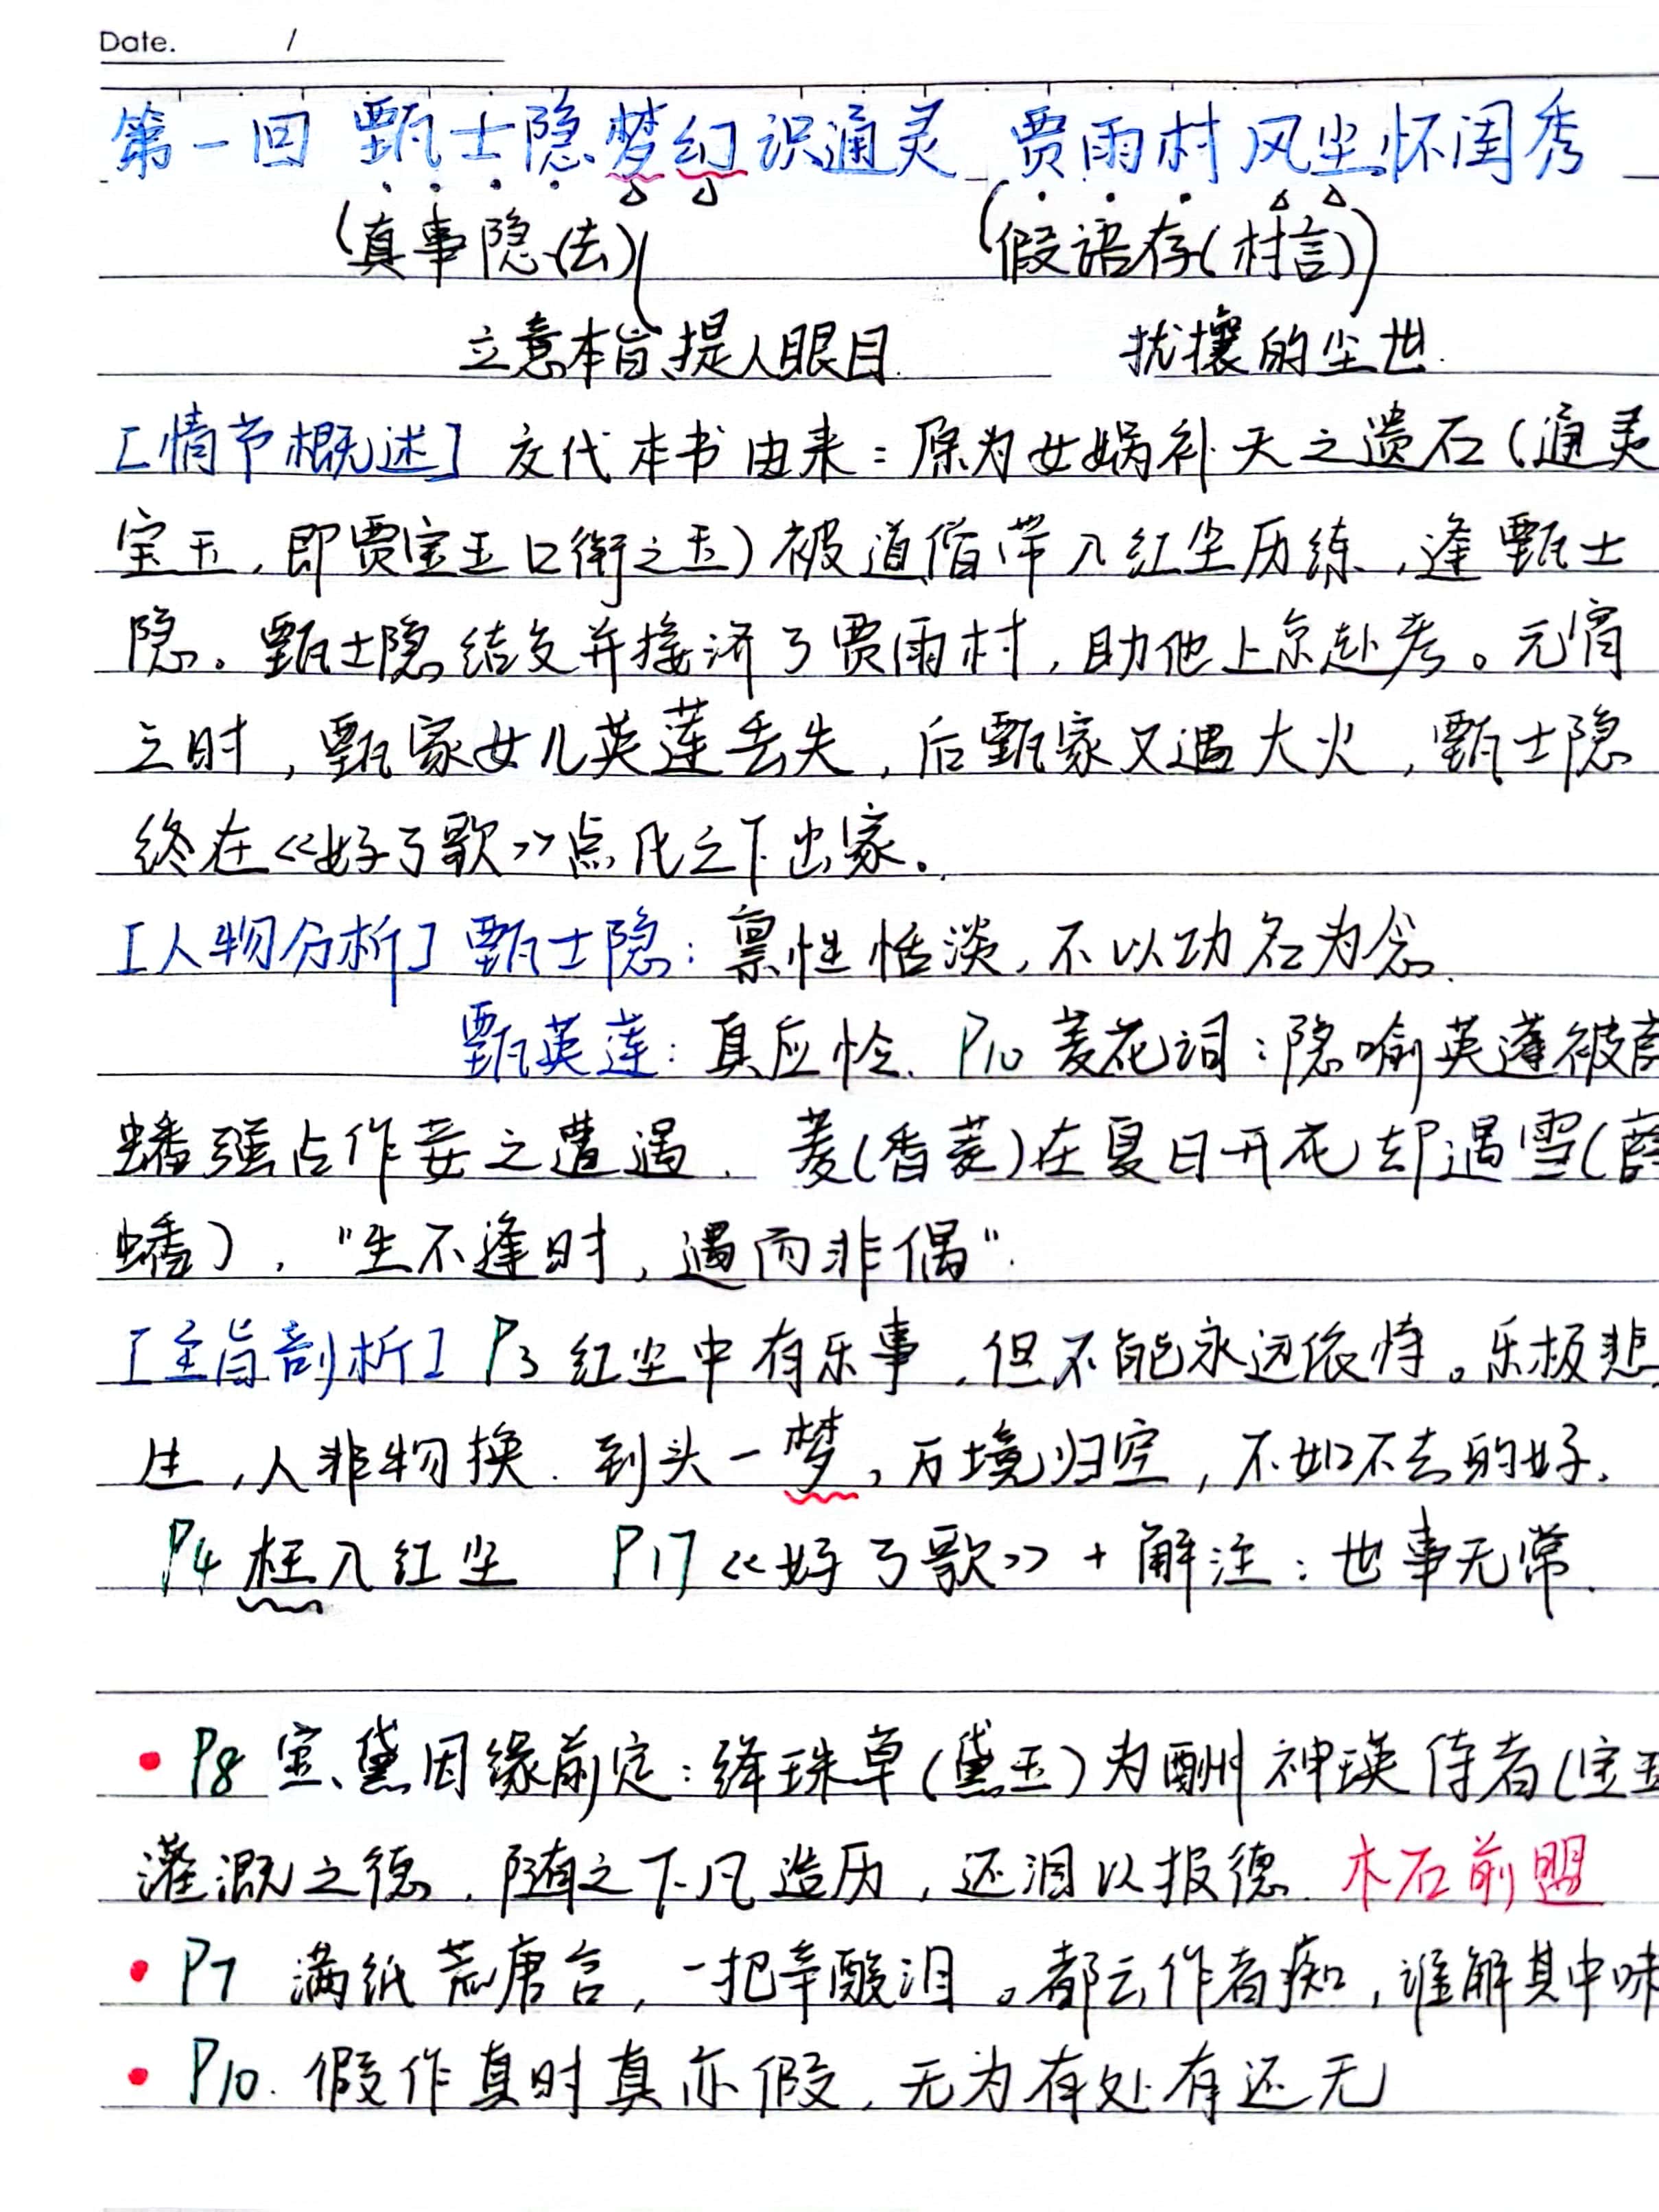 Date. /
第一回 甄士隐梦幻识通灵 贾雨村风尘怀闺秀
(真事隐(去)) (假语存(村言))
立意本旨、提人眼目. 扰攘的尘世.
[情节概述] 交代本书由来：原为女娲补天之遗石(通灵
宝玉,即贾宝玉口衔之玉)被道僧带入红尘历练,逢甄士
隐。甄士隐结交并接济了贾雨村,助他上京赴考。元宵
之时,甄家女儿英莲丢失,后甄家又遇大火,甄士隐
终在《好了歌》点化之下出家。
[人物分析] 甄士隐：禀性恬淡,不以功名为念.
甄英莲：真应怜. P10 菱花词：隐喻英莲被薛
蟠强占作妾之遭遇. 菱(香菱)在夏日开花却遇雪(薛
蟠),"生不逢时,遇而非偶".
[主旨剖析] P3 红尘中有乐事,但不能永远依恃。乐极悲
生,人非物换. 到头一梦,万境归空,不如不去的好.
P4 枉入红尘 P17 《好了歌》+解注：世事无常.
• P8 宝、黛因缘前定：绛珠草(黛玉)为酬神瑛侍者(宝玉
灌溉之德,随之下凡造历,还泪以报德. 木石前盟
• P7 满纸荒唐言,一把辛酸泪。都云作者痴,谁解其中味
• P10. 假作真时真亦假,无为有处有还无